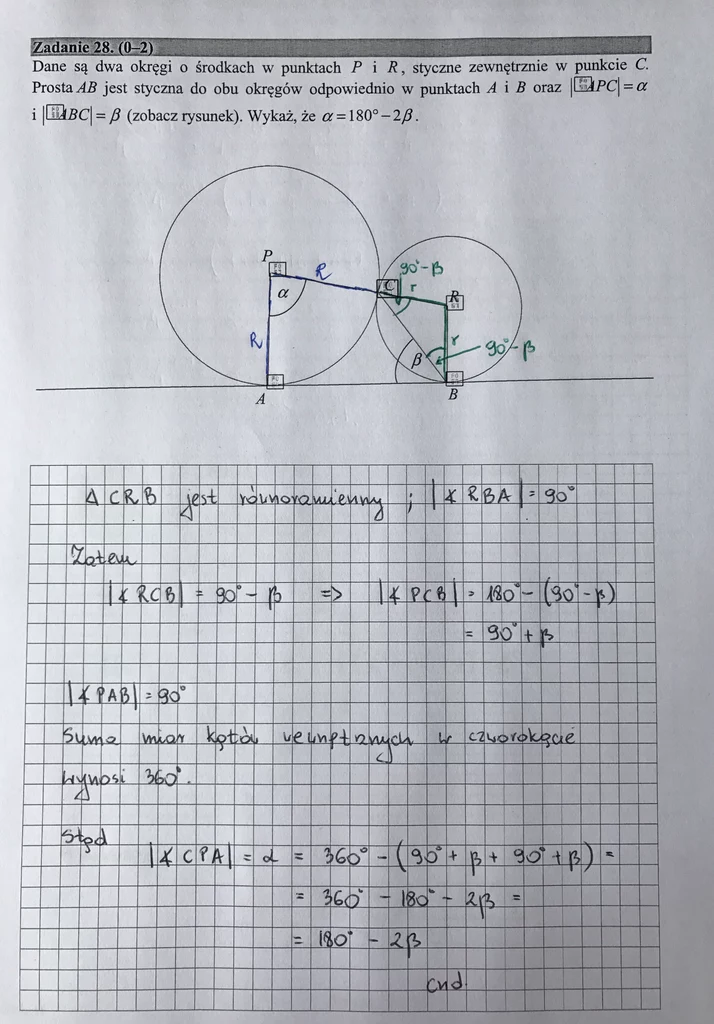 Zadanie 28. (0–2)
Dane są dwa okręgi o środkach w punktach P i R, styczne zewnętrznie w punkcie C.
Prosta AB jest styczna do obu okręgów odpowiednio w punktach A i B oraz |APC| = α
i |ABC| = β (zobacz rysunek). Wykaż, że α = 180° – 2β.
P
R
90°-β
C
r
R
α
R
r
90°-β
β
A
B
Δ CRB jest równoramienny ; |∢ RBA| = 90°
Zatem
|∢ RCB| = 90° - β => |∢ PCB| = 180° - (90° - β)
= 90° + β
|∢ PAB| = 90°
Suma miar kątów wewnętrznych w czworokącie
wynosi 360°.
Stąd |∢ CPA| = α = 360° - (90° + β + 90° + β) =
= 360° - 180° - 2β =
= 180° - 2β
cnd.